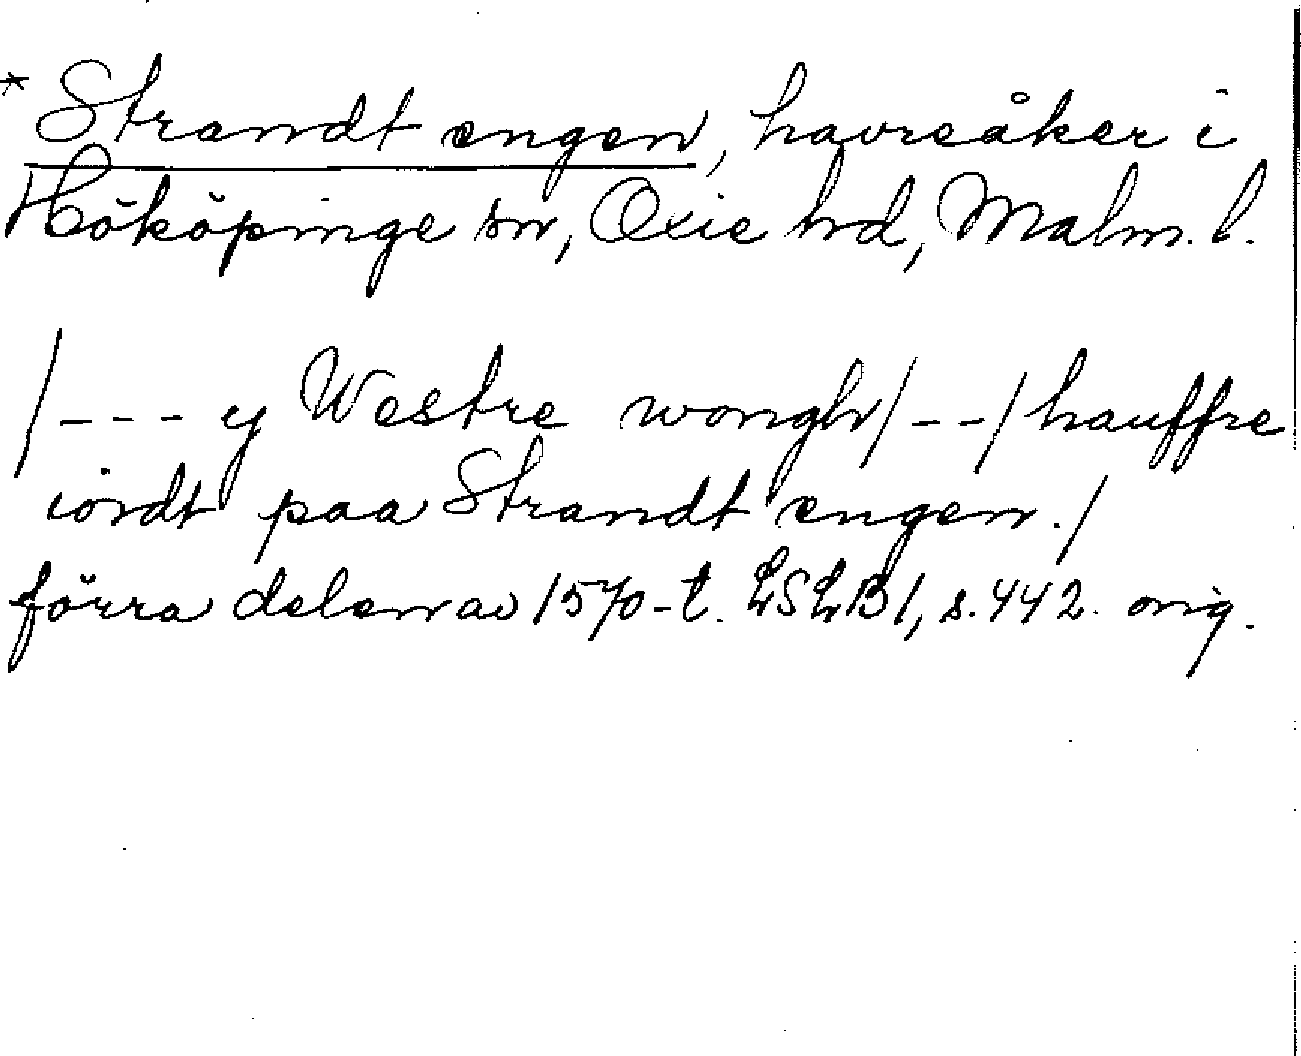 * Strandt engen, havreåker i
Hököpinge sn, Oxie hd, Malm. l.
/--- y Westre wongh/--/hauffre
iordt paa Strandt engen./
förra delen av 1570-t. LSLB1, s. 442. orig.